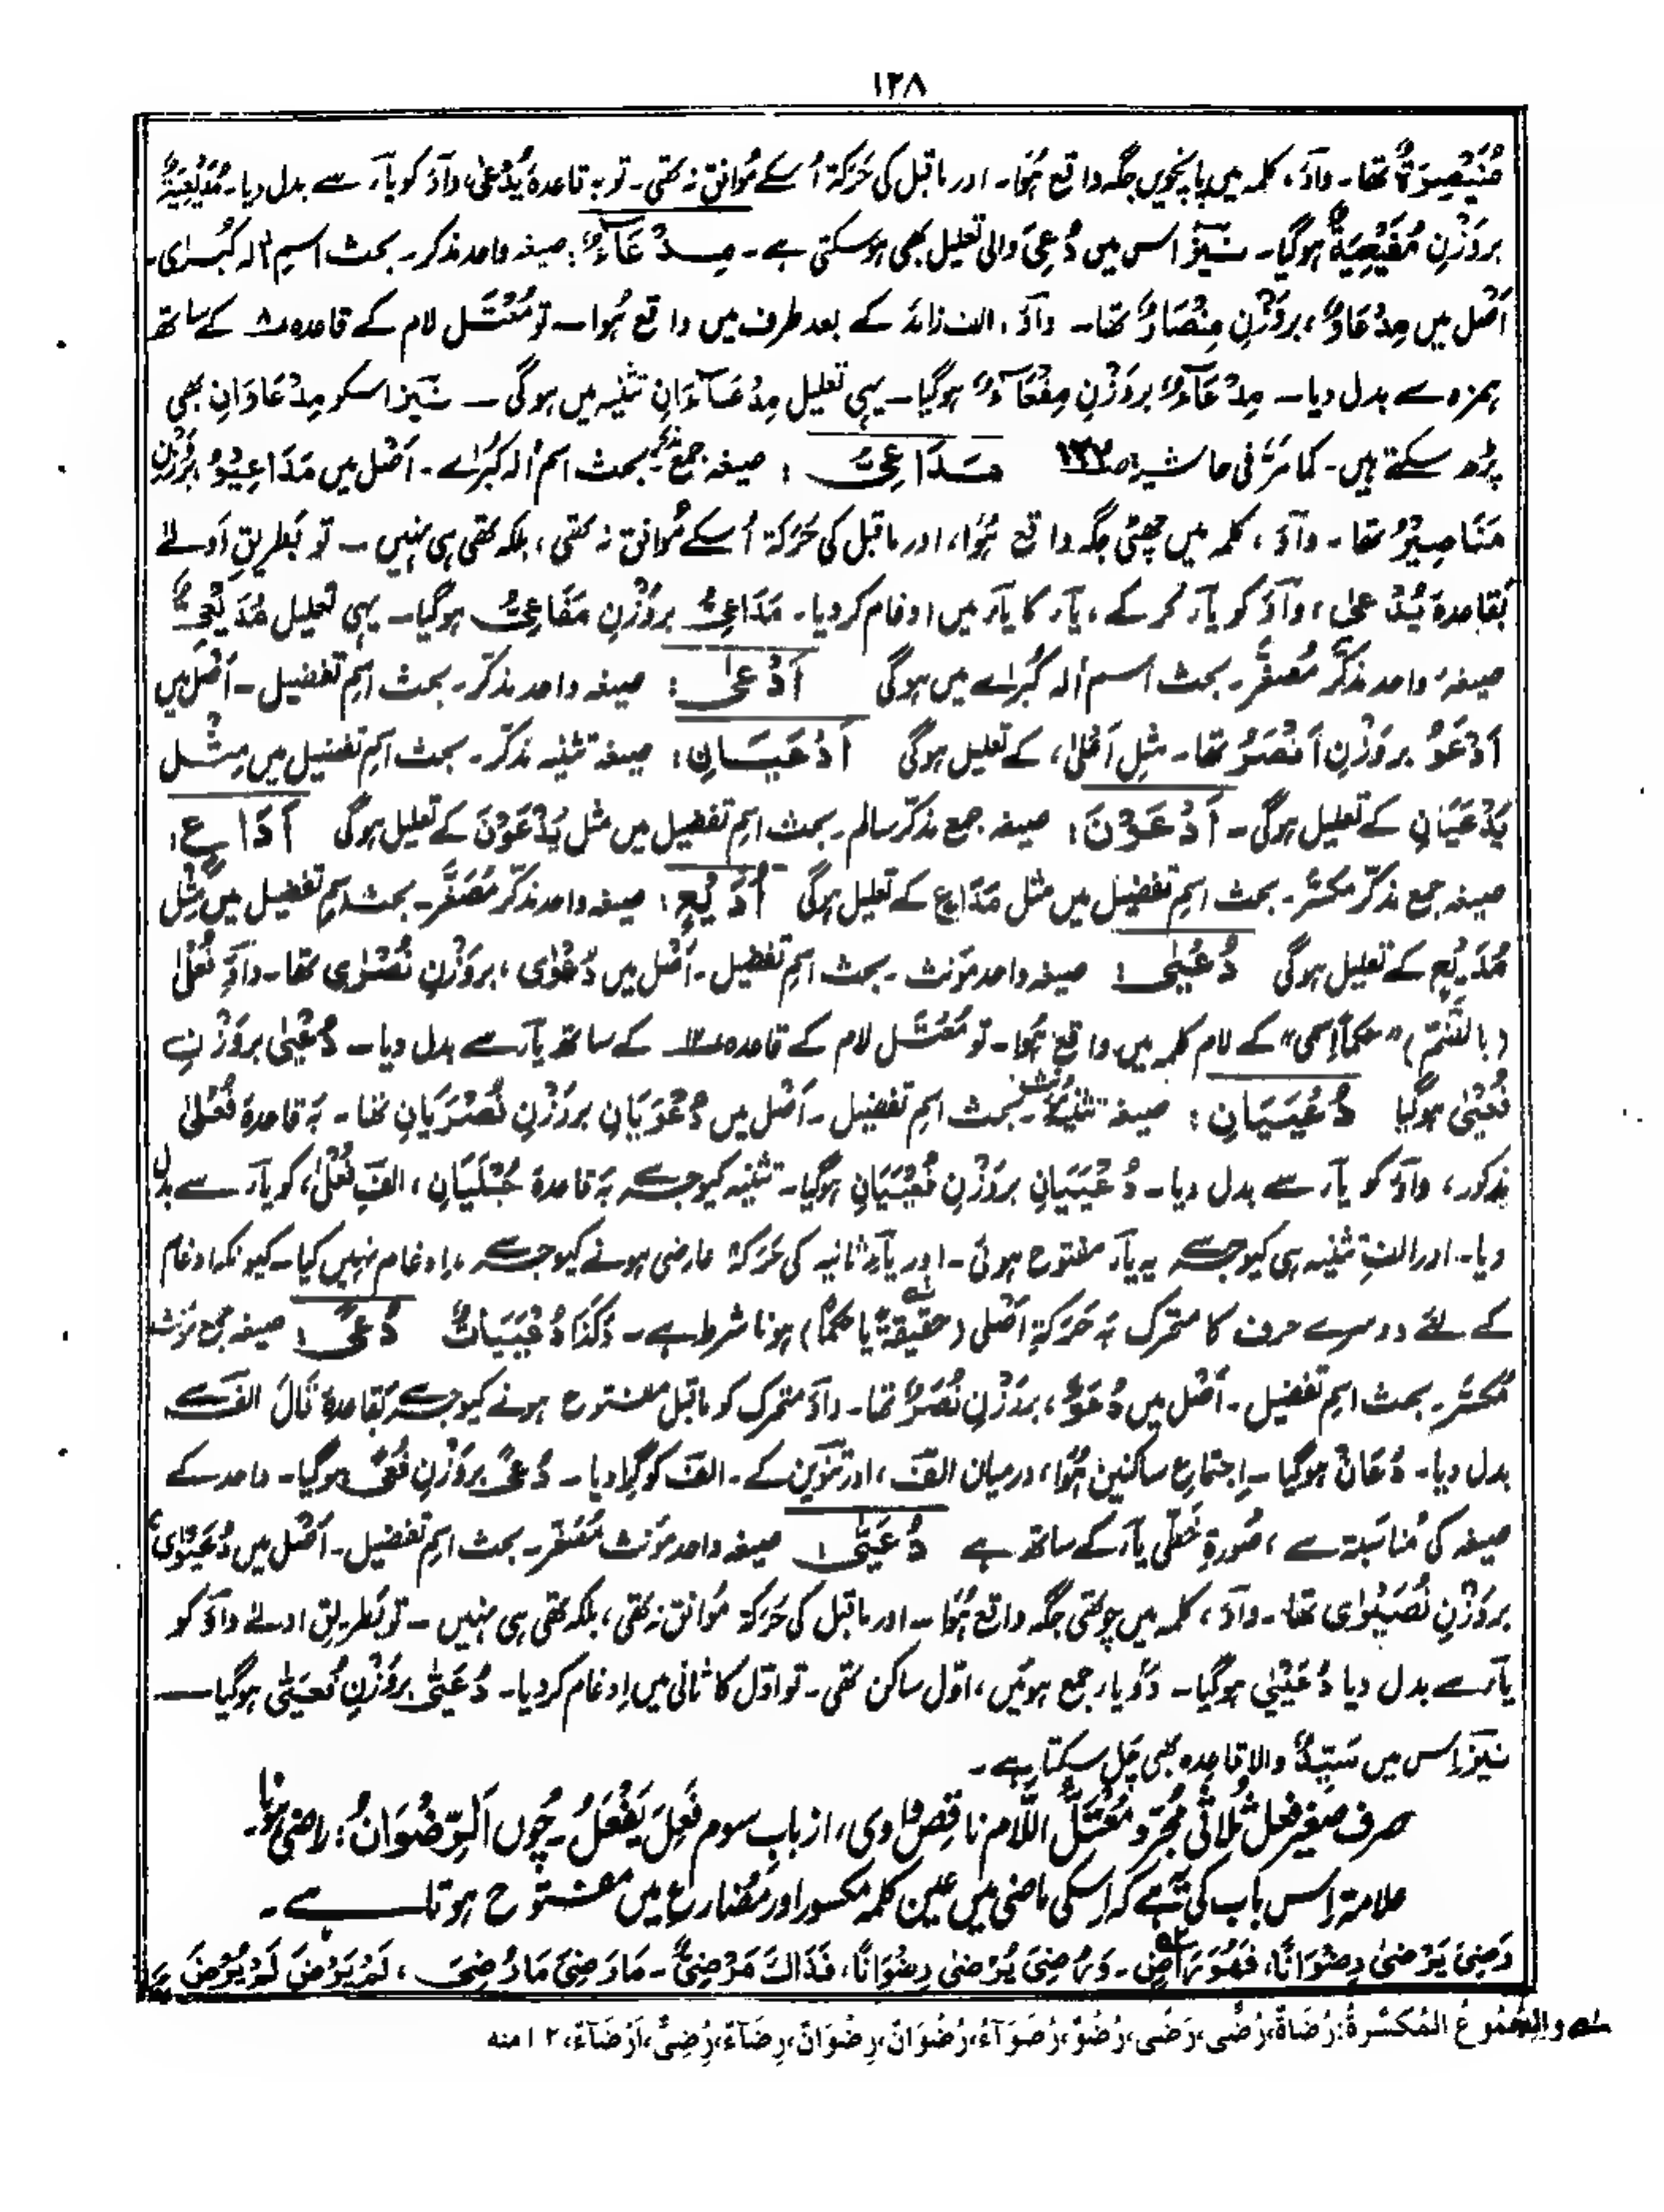 ۱۲۸
مُنَيْصِرَةٌ تھا۔ واؤ، کلمہ میں پانچویں جگہ واقع ہُوا۔ اور ماقبل کی حَرَکۃ اُسکے مُوافق نہ تھی۔ تو بہ قاعدۂ یُدْعٰی، واؤ کو یآر سے بدل دیا۔
بروَزْنِ مُفَيْعِيَةٌ ہوگیا۔ نیز اس میں دُعِیَ والی تعلیل بھی ہوسکتی ہے۔ مِدْعَآءٌ: صیغہ واحد مذکر۔ بحث اسمِ آلہ کُبْرٰی۔
اَصْل میں مِدْعَاوٌ، بروَزْنِ مِنْصَارٌ تھا۔ واؤ، الف زائد کے بعد طرف میں واقع ہُوا۔ تو مُعْتَل لام کے قاعدہ ۸ کے ساتھ
ہمزہ سے بدل دیا۔ مِدْعَآءٌ بروَزْنِ مِفْعَآءٌ ہوگیا۔ یہی تعلیل مِدْعَآءَانِ تثنیہ میں ہوگی۔ نیز اسکو مِدْعَاوَانِ بھی
پڑھ سکتے ہیں۔ کما مَرَّ فی حاشیۃ ص۱۲۲ مَدَاعِیُّ: صیغہ جمع مذکر۔ بحث اسم آلہ کُبْرٰے۔ اَصْل میں مَدَاعِيْوُ بروَزْنِ
مَنَاصِيْرُ تھا۔ واؤ، کلمہ میں چھٹی جگہ واقع ہُوا، اور ماقبل کی حَرَکۃ اُسکے مُوافق نہ تھی، بلکہ تھی ہی نہیں۔ تو بَطریقِ اَولے
بَقاعدۂ یُدْعٰی، واؤ کو یآر کرکے، یآر کا یآر میں ادغام کردیا۔ مَدَاعِیُّ بروَزْنِ مَفَاعِیُّ ہوگیا۔ یہی تعلیل مُدَيْعِیٌّ
صیغۂ واحد مذکّر مُصغَّر۔ بحث اسم آلہ کُبْرٰے میں ہوگی اَدْعٰی: صیغہ واحد مذکّر۔ بحث اسمِ تفضیل۔ اَصْل میں
اَدْعَوُ بروَزْنِ اَنْصَرُ تھا۔ مثلِ اَعْلٰی، کے تعلیل ہوگی اَدْعَيَانِ: صیغہ تثنیہ مذکّر۔ بحث اسمِ تفضیل میں مِثْل
يَدْعَيَانِ کے تعلیل ہوگی۔ اَدْعَوْنَ: صیغہ جمع مذکّر سالم۔ بحث اسمِ تفضیل میں مثل يُدْعَوْنَ کے تعلیل ہوگی اَدَاعٍ:
صیغہ جمع مذکّر مکسّر۔ بحث اسمِ تفضیل میں مثل مَدَاعٍ کے تعلیل ہوگی اُدَيْعٍ: صیغہ واحد مذکّر مُصَغَّر۔ بحث اسمِ تفضیل میں مِثْل
مُدَيْعٍ کے تعلیل ہوگی دُعْیٰی: صیغہ واحد مؤنث۔ بحث اسمِ تفضیل۔ اَصْل میں دُعْوٰی، بروَزْنِ نُصْرٰی تھا۔ واؤِ فُعْلٰی
(بالضَّم) "حکماً اِسمی" کے لام کلمہ میں واقع ہُوا۔ تو مُعْتَل لام کے قاعدہ ۱۲ کے ساتھ یآر سے بدل دیا۔ دُعْیٰی بروَزْنِ
فُعْیٰی ہوگیا دُعْيَيَانِ: صیغہ تثنیہ مؤنث۔ بحث اسمِ تفضیل۔ اَصْل میں دُعْوَيَانِ بروَزْنِ نُصْرَيَانِ تھا۔ بَہ قاعدۂ فُعْلٰی
مذکور، واؤ کو یآر سے بدل دیا۔ دُعْيَيَانِ بروَزْنِ فُعْيَيَانِ ہوگیا۔ تثنیہ کیوجہ سے بَہ قاعدۂ حُبْلَيَانِ، الفِ فُعْلٰی، کو یآر سے بدل
دیا۔ اور الفِ تثنیہ ہی کیوجہ سے یہ یآر مفتوح ہوئی۔ اور یآرِ ثانیہ کی حَرَکۃ عارضی ہونے کیوجہ سے، اِدغام نہیں کیا۔ کیونکہ ادغام
کے لئے دوسرے حرف کا متحرک بَہ حَرَکۃِ اَصْلی (حقیقۃً یا حکماً) ہونا شرط ہے۔ وَكَذَا دُعْيَيَاتٌ دُعًی: صیغہ جمع مؤنث
مُکسَّر۔ بحث اسمِ تفضیل۔ اَصْل میں دُعَوٌ، بروَزْنِ نُصَرٌ تھا۔ واؤ متحرک کو ماقبل مفتوح ہونے کیوجہ سے بَقاعدۂ قَالَ الف سے
بدل دیا۔ دُعَانْ ہوگیا۔ اِجتماعِ ساکنین ہُوا، درمیان الف، اور تنوین کے۔ الف کو گِرا دیا۔ دُعًی بروَزْنِ فُعًی ہوگیا۔ واحد کے
صیغہ کی مُناسَبۃ سے، صُورۃِ خَطّی یآر کے ساتھ ہے دُعَیّٰی: صیغہ واحد مؤنث مُصَغَّر۔ بحث اسمِ تفضیل۔ اَصْل میں دُعَيْوٰی
بروَزْنِ نُصَيْرٰی تھا۔ واؤ، کلمہ میں چوتھی جگہ واقع ہُوا۔ اور ماقبل کی حَرَکۃ مُوافق نہ تھی، بلکہ تھی ہی نہیں۔ تو بَطریق اولےٰ واؤ کو
یآر سے بدل دیا دُعَيْیٰی ہوگیا۔ دَو یار جمع ہوئیں، اوّل ساکن تھی۔ تو اوّل کا ثانی میں اِدغام کردیا۔ دُعَیّٰی بروَزْنِ فُعَیّٰی ہوگیا۔
نیز اِس میں سَيِّدٌ والا قاعدہ بھی چَل سکتا ہے۔
صرفِ صغیر فعل ثُلاثی مُجرَّد مُعْتَلُّ اللّام ناقِص واوی، از بابِ سوم فَعِلَ يَفْعَلُ۔ چُوں اَلرِّضْوَانُ: راضی ہونا۔
علامۃ اِس باب کی یہ ہے کہ اِسکی ماضی میں عین کلمہ مکسور اور مُضارِع میں مفتوح ہوتا ہے۔
رَضِیَ يَرْضٰی رِضْوَانًا، فَهُوَ رَاضٍ۔ وَرُضِیَ يُرْضٰی رِضْوَانًا، فَذَاكَ مَرْضِیٌّ۔ مَا رَضِیَ مَا رُضِیَ، لَمْ يَرْضَ لَمْ يُرْضَ
والجُمُوعُ المُكَسَّرَةُ: رُضَاةٌ، رُضًّی، رُضًی، رُضْوٌ، رُضَوَآءُ، رُضْوَانٌ، رِضْوَانٌ، رِضَآءٌ، رُضِیٌّ، اَرْضَآءٌ، ۱۲ منه